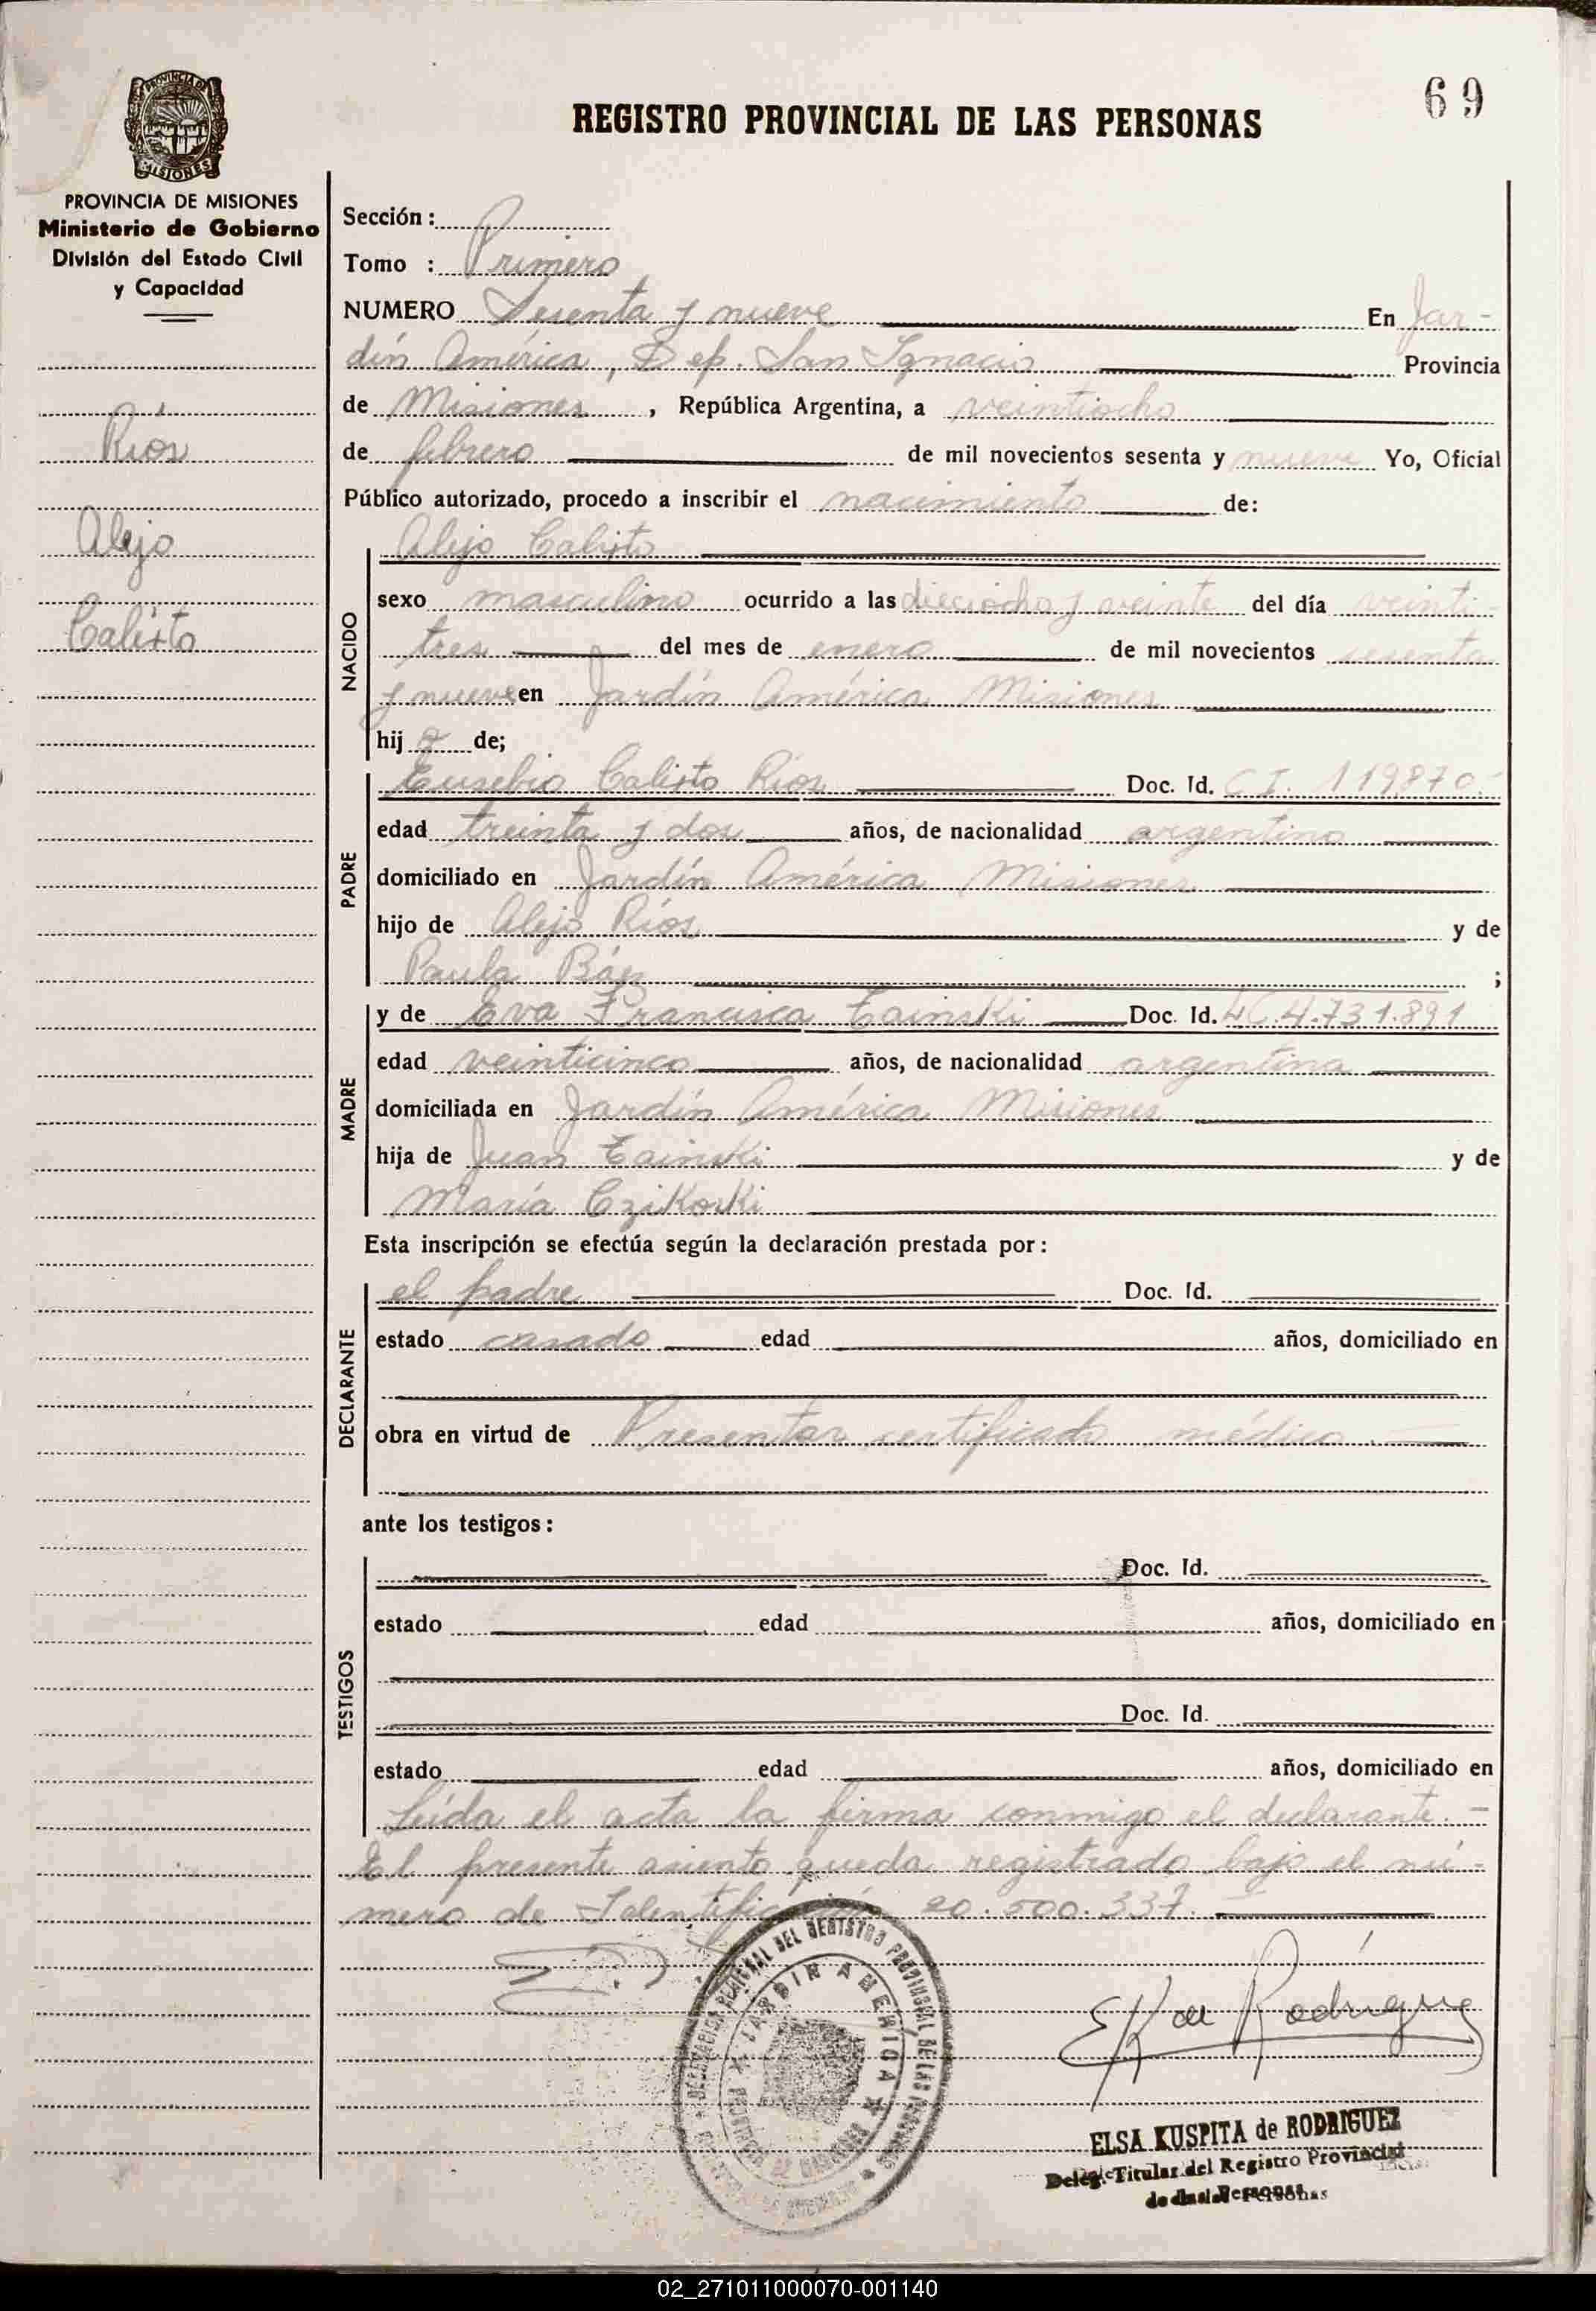 69
REGISTRO PROVINCIAL DE LAS PERSONAS
PROVINCIA DE
MISIONES
PROVINCIA DE MISIONES
Ministerio de Gobierno
División del Estado Civil
y Capacidad
Ríos
Alejo
Calixto
Sección :
Tomo : Primero
NUMERO Sesenta y nueve En Jar-
dín América, Dep. San Ignacio Provincia
de Misiones, República Argentina, a veintiocho
de febrero de mil novecientos sesenta y nueve Yo, Oficial
Público autorizado, procedo a inscribir el nacimiento de:
NACIDO
Alejo Calixto
sexo masculino ocurrido a las dieciocho y veinte del día veinti-
tres del mes de enero de mil novecientos sesenta
y nueve en Jardín América Misiones
hijo de;
PADRE
Eusebio Calixto Ríos Doc. Id. C I. 119.870.-
edad treinta y dos años, de nacionalidad argentino
domiciliado en Jardín América Misiones
hijo de Alejo Ríos y de
Paula Báez ;
MADRE
y de Eva Francisca Tainski Doc. Id. LC.4.731.891
edad veinticinco años, de nacionalidad argentina
domiciliada en Jardín América Misiones
hija de Juan Tainski y de
María Czikoski
Esta inscripción se efectúa según la declaración prestada por:
DECLARANTE
el padre Doc. Id.
estado casado edad años, domiciliado en
obra en virtud de Presentar certificado médico.
ante los testigos:
TESTIGOS
Doc. Id.
estado edad años, domiciliado en
Doc. Id.
estado edad años, domiciliado en
Leída el acta la firma conmigo el declarante.-
El presente asiento queda registrado bajo el nú-
mero de 20.500.337.
DEL REGISTRO PROVINCIAL DE LAS PERSONAS
JARDIN AMERICA
E K de Rodriguez
ELSA KUSPITA de RODRIGUEZ
Deleg. Titular del Registro Provincial
de las Personas
02_271011000070-001140